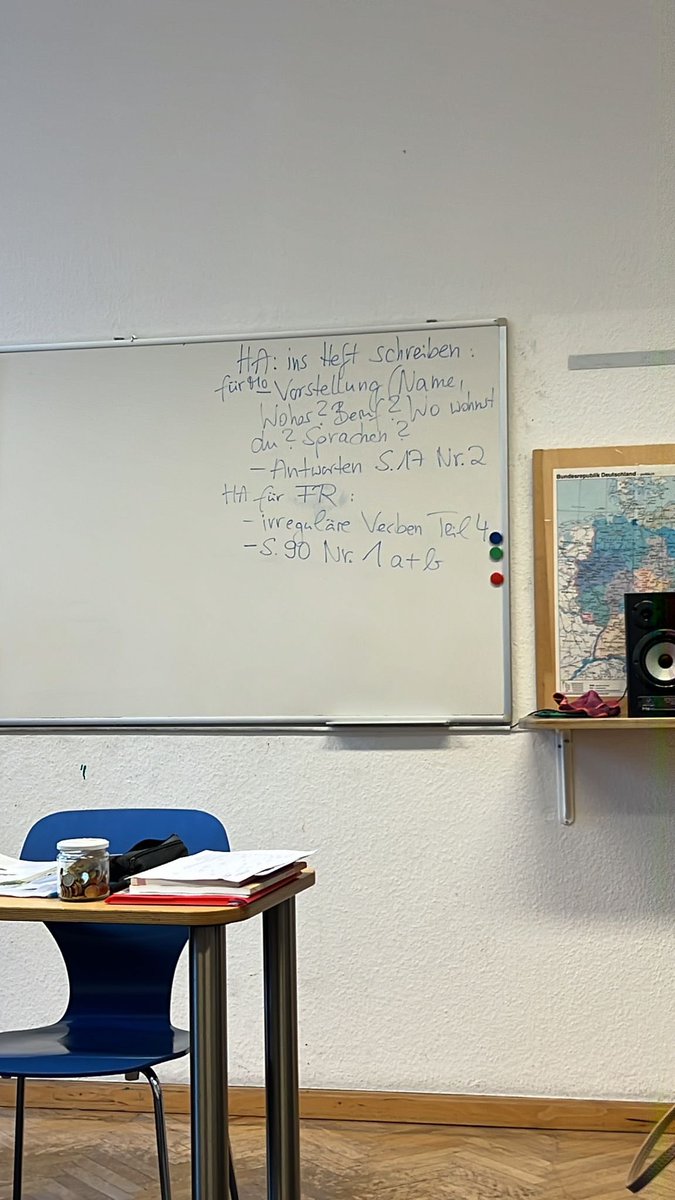 HA: ins Heft schreiben:
für Mo – Vorstellung (Name,
Woher? Beruf? Wo wohnst
du? Sprachen?
– Antworten S. 17 Nr. 2
HA für FR:
– irreguläre Verben Teil 4
– S. 90 Nr. 1 a+b
Bundesrepublik Deutschland